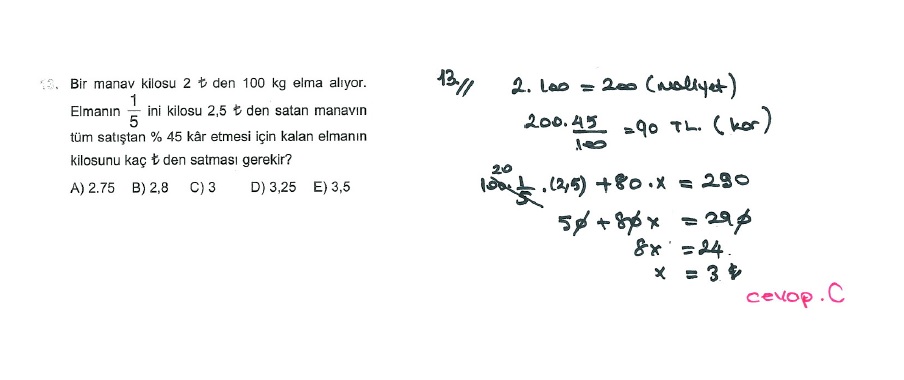 13. Bir manav kilosu 2 ₺ den 100 kg elma alıyor.
Elmanın 1/5 ini kilosu 2,5 ₺ den satan manavın
tüm satıştan % 45 kâr etmesi için kalan elmanın
kilosunu kaç ₺ den satması gerekir?
A) 2.75 B) 2,8 C) 3 D) 3,25 E) 3,5
13.//
2. 100 = 200 (maliyet)
200. 45/100 = 90 TL. (kar)
20
100. 1/5 .(2,5) + 80.x = 290
50 + 80x = 290
8x = 24.
x = 3 ₺
cevap. C